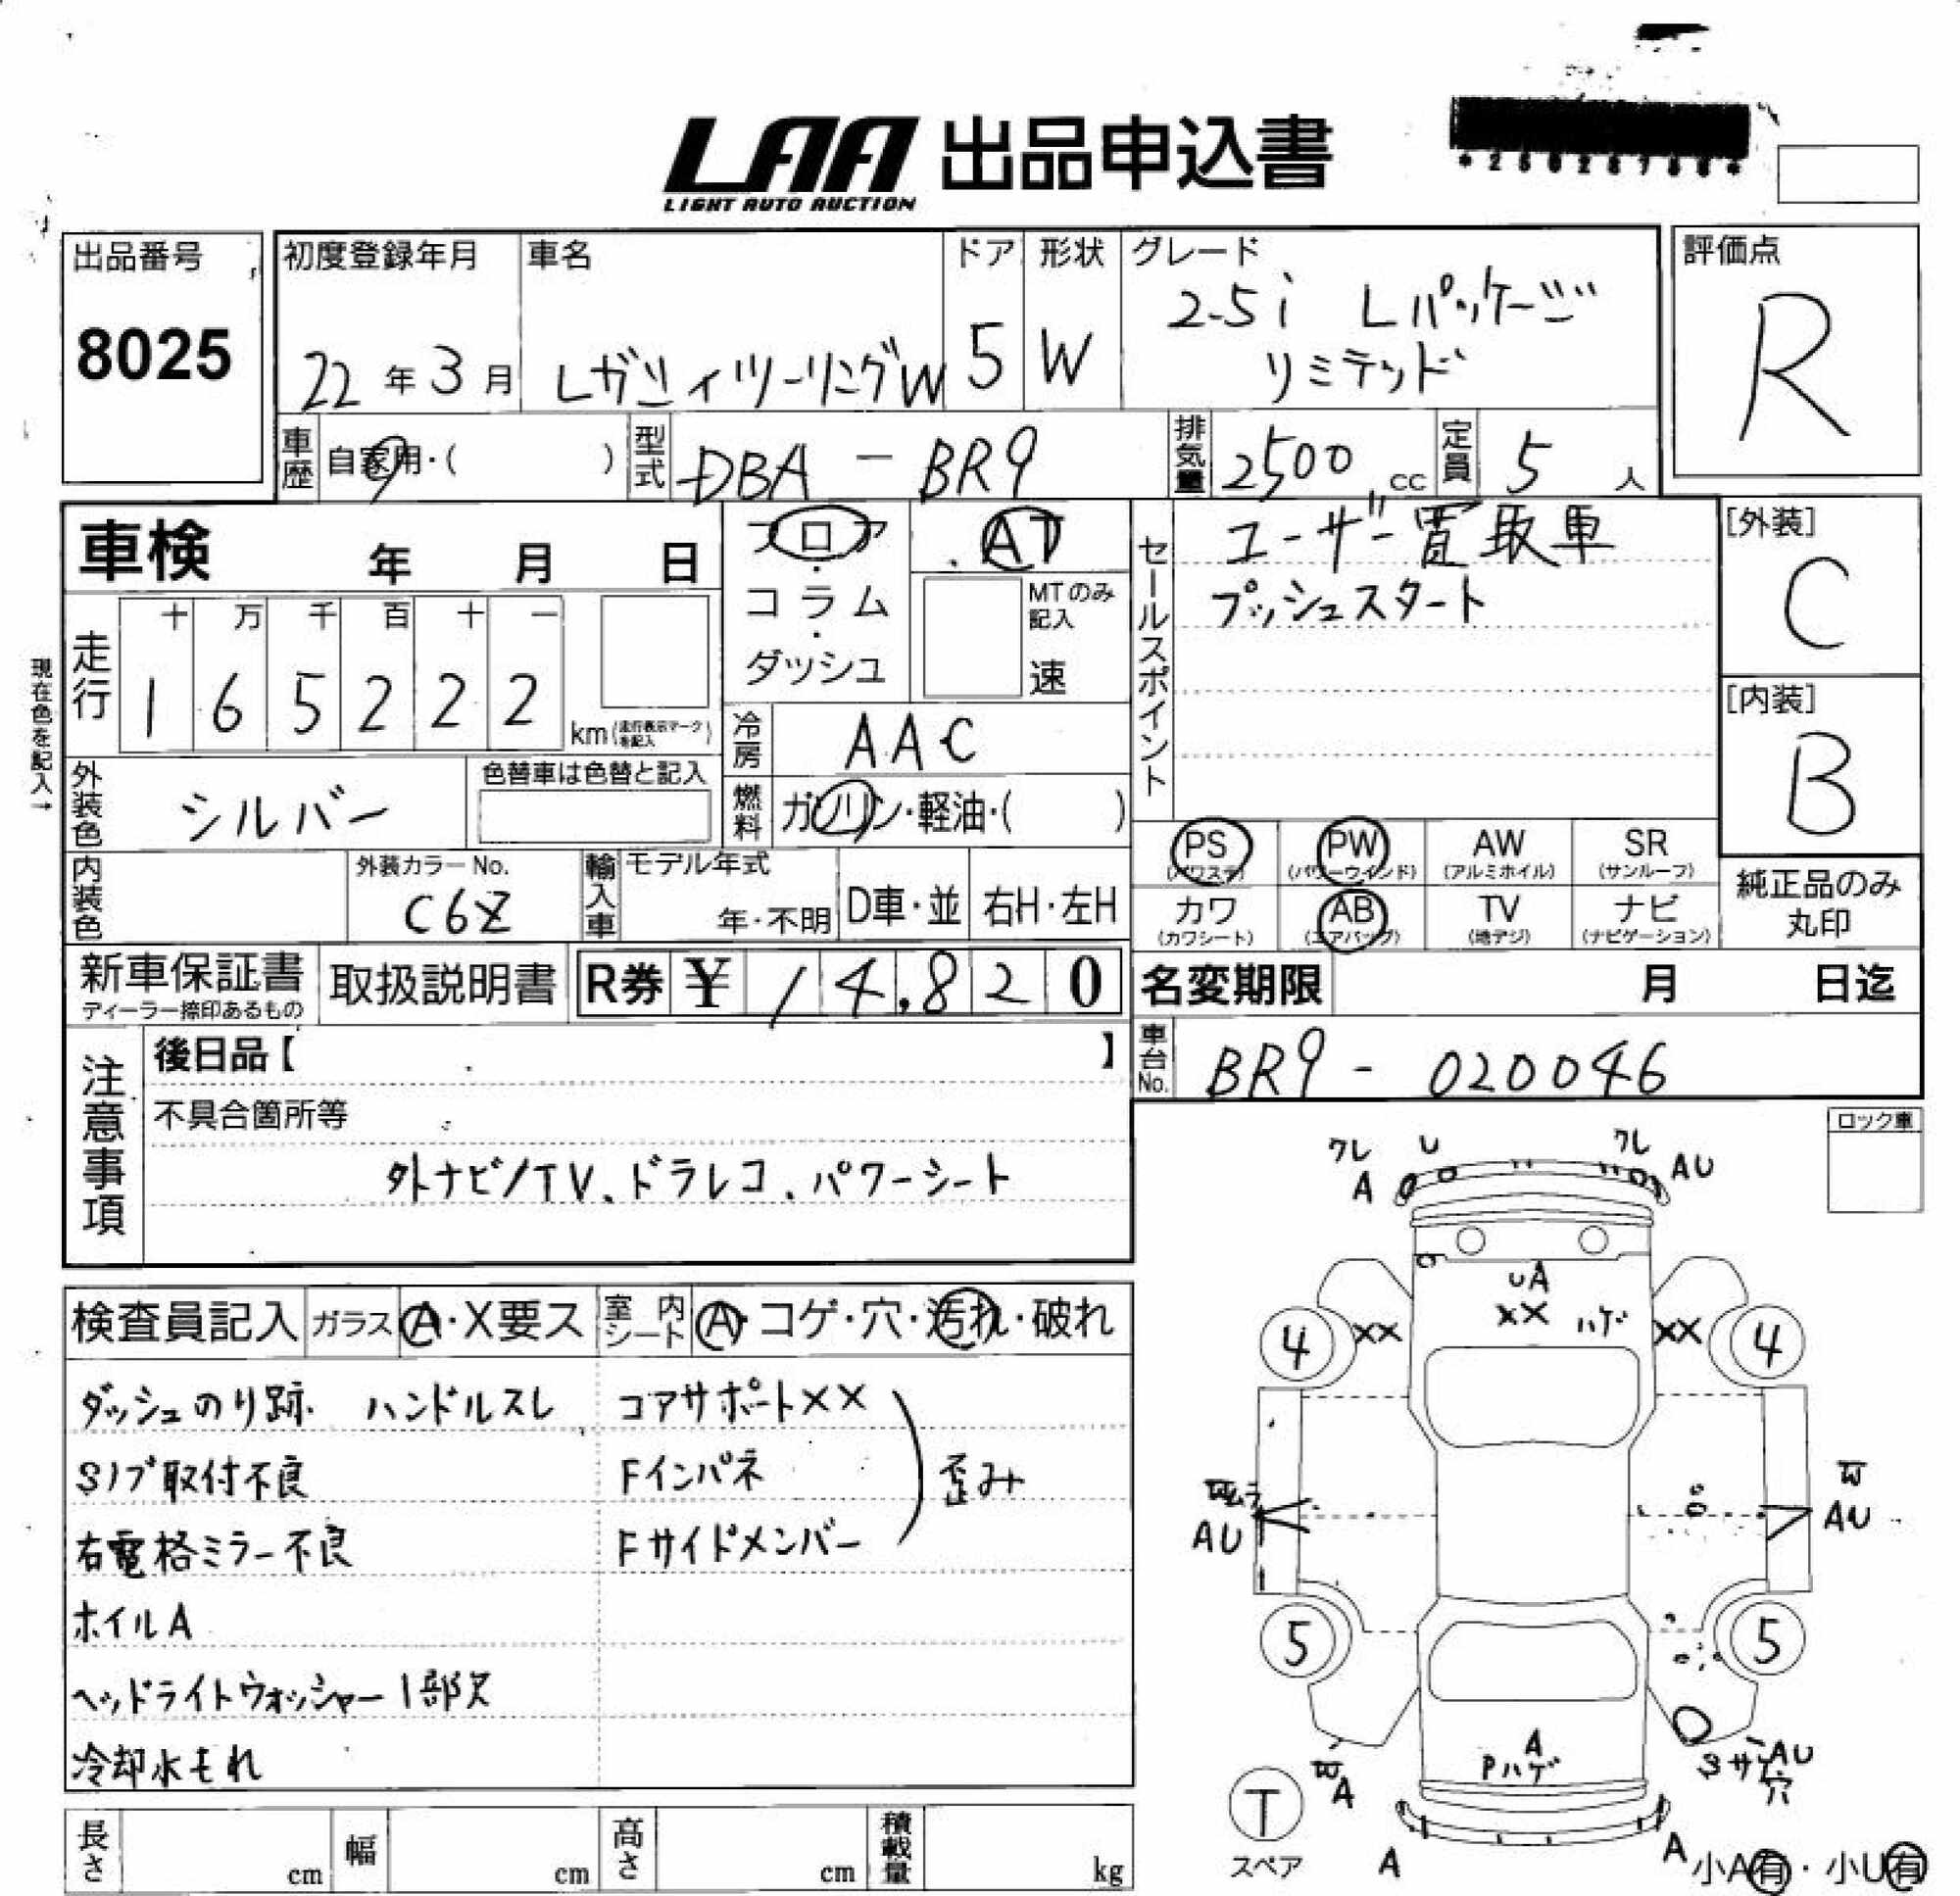 LAA 出品申込書
LIGHT AUTO AUCTION
*25028768*
出品番号
8025
初度登録年月
22年3月
車名
レガシィツーリングW
ドア
5
形状
W
グレード
2.5i Lパッケージ
リミテッド
評価点
R
車歴
自家用・( )
型式
DBA - BR9
排気量
2500 cc
定員
5 人
車検 年 月 日
フロア
・
コラム
・
ダッシュ
AT
MTのみ
記入
速
セールスポイント
ユーザー買取車
プッシュスタート
[外装]
C
[内装]
B
現在色を記入→
走行
十 万 千 百 十 一
1 6 5 2 2 2
km(走行表示マークを記入)
冷房
AAC
外装色
シルバー
色替車は色替と記入
燃料
ガソリン・軽油・( )
内装色
外装カラーNo.
C6Z
輸入車
モデル年式
年・不明
D車・並
右H・左H
PS
(パワステ)
PW
(パワーウインド)
AW
(アルミホイル)
SR
(サンルーフ)
カワ
(カワシート)
AB
(エアバッグ)
TV
(地デジ)
ナビ
(ナビゲーション)
純正品のみ
丸印
新車保証書
ディーラー捺印あるもの
取扱説明書
R券 ¥ 14,820
名変期限 月 日迄
車台No.
BR9 - 020046
注意事項
後日品【 】
不具合箇所等
外ナビ/TV、ドラレコ、パワーシート
ロック車
検査員記入
ガラス
A・X要ス
室内シート
A・コゲ・穴・汚れ・破れ
ダッシュのり跡 ハンドルスレ
Sノブ取付不良
右電格ミラー不良
ホイルA
ヘッドライトウォッシャー1部欠
冷却水もれ
コアサポートXX
Fインパネ
Fサイドメンバー
歪み
ワレ U ワレ
A AU
UA
XX ハゲ
4 XX XX 4
AU
W
AU
5 5
A
Pハゲ
AU
穴
A
T
スペア
A
A
小A有・小U有
長さ cm
幅 cm
高さ cm
積載量 kg